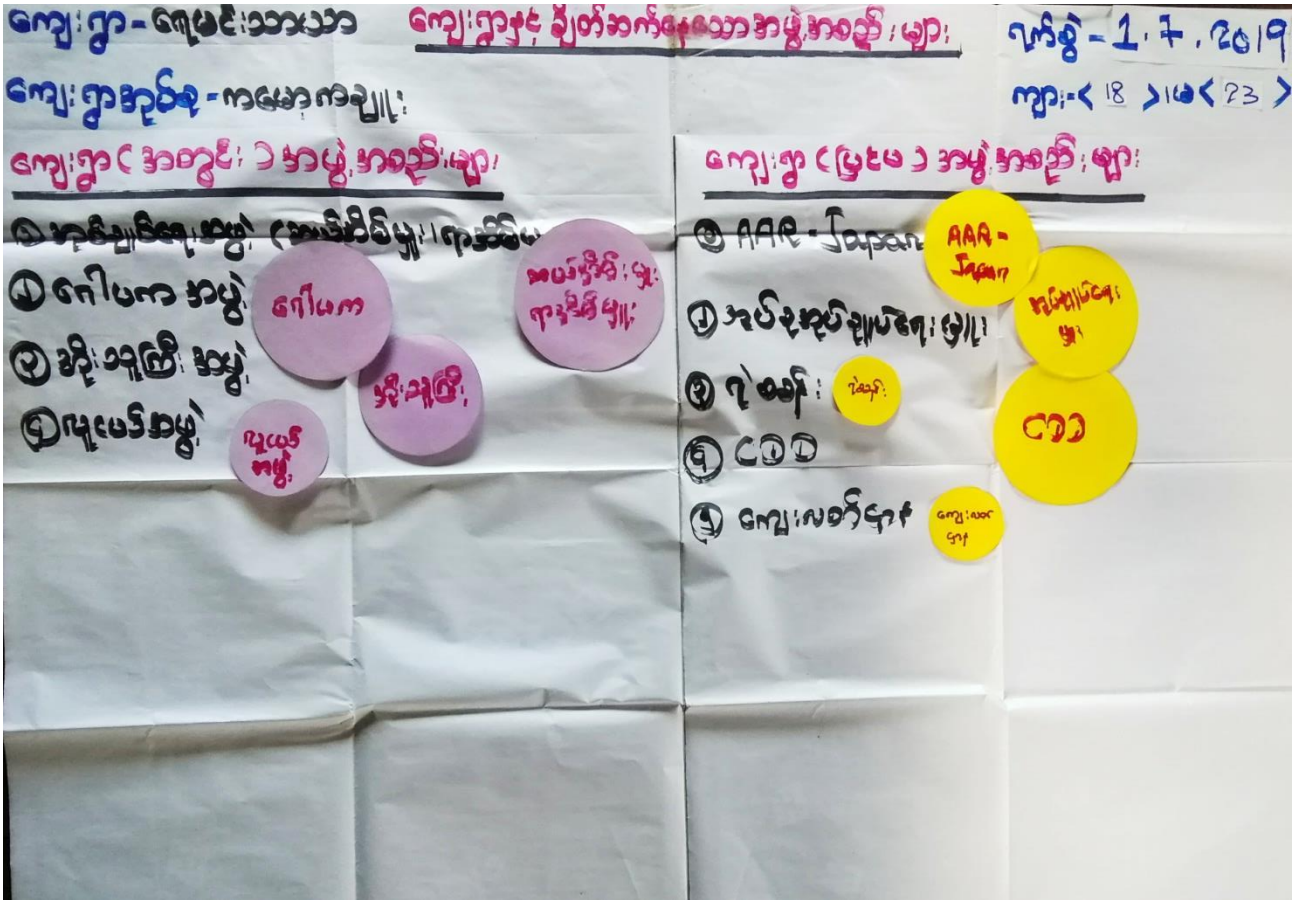 ကျေးရွာ - ရေမင်းသာယာ
ကျေးရွာနှင့် ချိတ်ဆက်နေသော အဖွဲ့အစည်းများ
ရက်စွဲ - 1.7.2019
ကျေးရွာအုပ်စု - ကမော့ကချူး
ကျား - < 18 > ၊ မ < 23 >
ကျေးရွာ ( အတွင်း ) အဖွဲ့အစည်းများ
① အုပ်ချုပ်ရေးအဖွဲ့ (ဆယ်အိမ်မှူး၊ ရာအိမ်မ
② ဂေါပကအဖွဲ့
③ အိုးသူကြီးအဖွဲ့
④ လူငယ်အဖွဲ့
ဂေါပက
ဆယ်အိမ်မှူး
ရာအိမ်မှူး
အိုးသူကြီး
လူငယ်
အဖွဲ့
ကျေးရွာ ( ပြင်ပ ) အဖွဲ့အစည်းများ
① AAR - Japan
② အုပ်စုအုပ်ချုပ်ရေးမှူး
③ ရဲစခန်း
④ CDD
⑤ ကျေးလက်ဌာန
AAR -
Japan
အုပ်ချုပ်ရေး
မှူး
ရဲစခန်း
CDD
ကျေးလက်
ဌာန